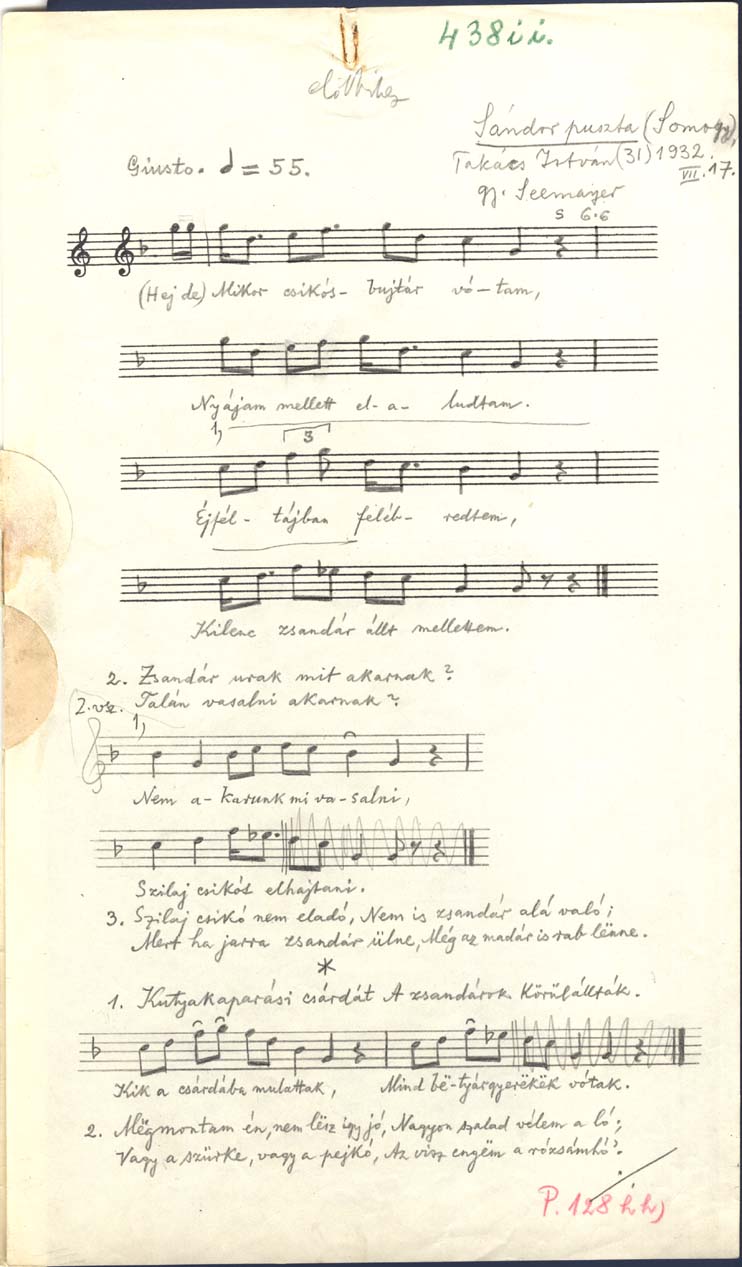 438ii.
előttihez
Sándor puszta (Somogy),
Takács István (31) 1932.
VII. 17.
gy. Seemayer
Giusto. = 55.
s 6.6
(Hej de) Mikor csikós- bujtár vó-tam,
Nyájam mellett el-a- ludtam.
1,
3
Éjfél- tájban feléb- redtem,
Kilenc zsandár állt mellettem.
2. Zsandár urak mit akarnak?
2. vsz. Talán vasalni akarnak?
1,
Nem a-karunk mi va-salni,
Szilaj csikós elhajtani.
3. Szilaj csikó nem eladó, Nem is zsandár alá való;
Mert ha jarra zsandár ülne, Még az madár is rab lënne.
*
1. Kutyakaparási csárdát A zsandárok körülállták.
Kik a csárdába mulattak, Mind bë-tyárgyerëkëk vótak.
2. Mëgmontam én, nem lësz így jó, Nagyon szalad vélem a ló;
Vagy a szürke, vagy a pejkó, Az visz engëm a rózsámhó?
P. 128 hh)